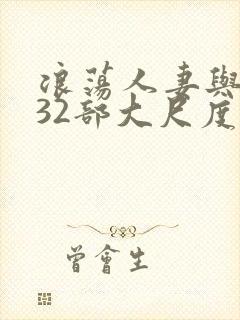 浪蕩人妻與
32部大尺度
曾會生